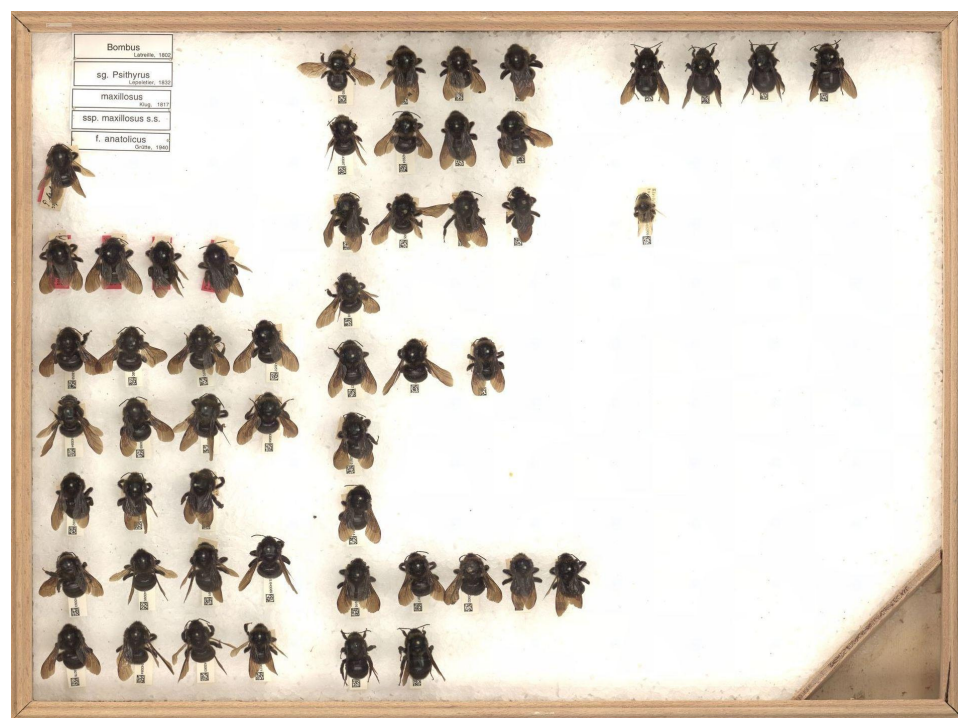 Bombus
Latreille, 1802
sg. Psithyrus
Lepeletier, 1832
maxillosus
Klug, 1817
ssp. maxillosus s.s.
f. anatolicus
Grütte, 1940